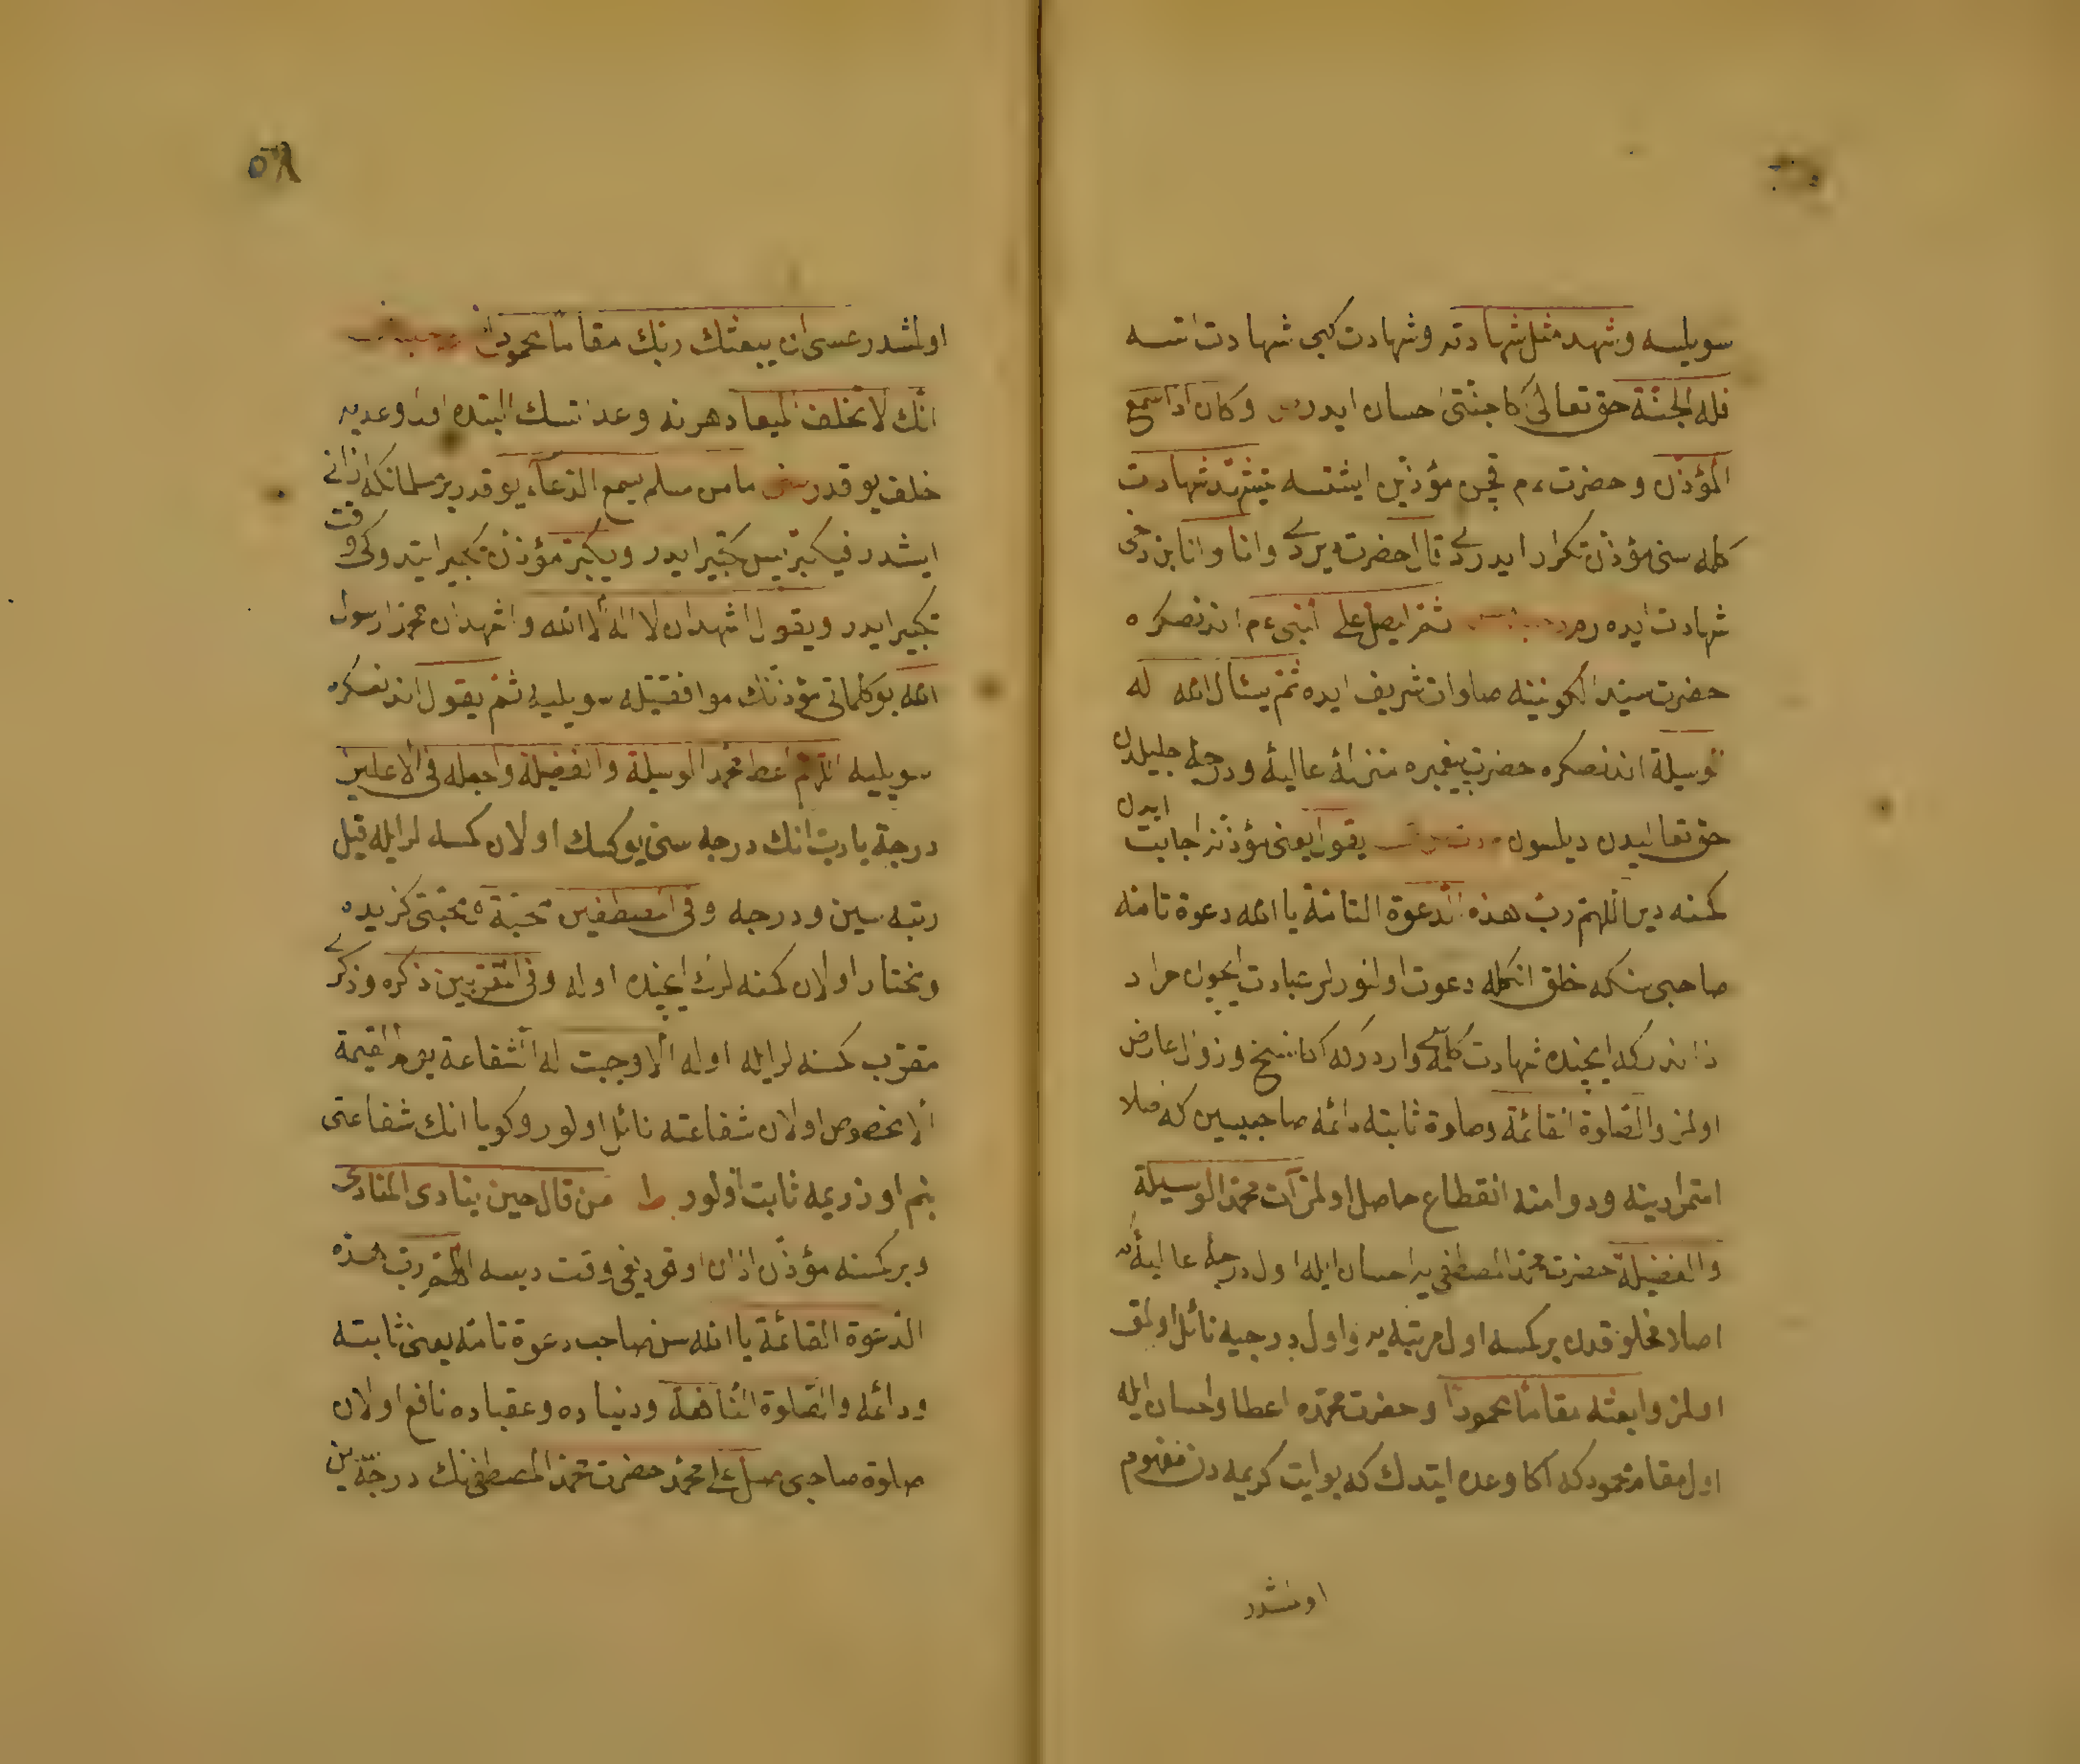 سويليسه وشهد مثل شهادته وشهادت كبی شهادت اتسه
فله الجنّة حق تعالی اكا جنّتی احسان ايدر وكان اذا سمع
المؤذّن وحضرت ءم قچن مؤذّنی ايشتسه يتشهّد شهادت
كلمه سنی مؤذن تكرار ايدردی قال حضرت ديردی وانا وانا بن دخی
شهادت ايده رم ثمّ ليصلّ علی النبی ءم اندنصكره
حضرت سيّد الكونينه صلوات شريف ايده ثمّ يسئال الله له
الوسيلة اندنصكره حضرت پيغمبره منزلۀ عاليۀ ودرجۀ جليله دن
حق تعاليدن ديلسون يقول يعنی مؤذّنه اجابت ايدن
كمسنه دير اللهمّ ربّ هذه الدعوة التامّة يا الله دعوة تامّه
صاحبی سنكه خلق انكله دعوت اولنورلر عبادت ايچون مراد
ذاندركه ايچنده شهادت كلمه سی واردركه اكا نسخ وزوال عارض
اولمز والصّلوة القائمة وصلوة ثابته دائمه صاحبیسين كه اصلا
استمرارينه ودوامنه انقطاع حاصل اولمز آت محمّدا الوسيلة
والفضيلة حضرت محمّد المصطفی يه احسان ايله اول درجۀ عاليۀ كه
اصلا مخلوقدن بر كمسه اول مرتبه يه واول درجيه نائل اولمق
اولمز وابعثه مقاما محمودا وحضرت محمّده اعطا واحسان ايله
اول مقام محمود كه اكا وعده ايتدك كه بو ايت كريمه دن مفهوم
اولمشدر
٥٨
اولمشدر عسی ان يبعثك ربّك مقاما محمودا
انّك لا تخلف الميعاد هرنه وعد اتسك البتده اول وعديه
خلف يوقدر ما من مسلم يسمع النداء يوقدر بر مسلمانكه اذانی
ايشدر فيكبّر پس تكبير ايدر ويكبّر مؤذّن تكبير ايتدوكی وقت
تكبير ايدر ويقول اشهد ان لا اله الّا الله واشهد ان محمّدا رسول
الله بو كلماتی مؤذّنك موافقتيله سويليه ثمّ يقول اندنصكره
سويليه اللهمّ اعط محمّدا الوسيلة والفضيلة واجعله فی الاعلين
درجة يا ربّ انك درجه سنی يوكسك اولان كمسه لر ايله قيل
رتبه سين ودرجه وفی المصطفين محبّته محبّتی كزيده
ومختار اولان كمسه لرك ايچنده اوله وفی المقرّبين ذكره وذكری
مقرّب كمسنه لر ايله اوله الّا وجبت له الشّفاعة يوم القيمة
الّا مخصوص اولان شفاعته نائل اولور وكويا انك شفاعتی
بنم اوزريمه ثابت اولور ط من قال حين ينادی المنادی
وبر كمسنه مؤذّن اذان اوقودیغی وقت ديسه اللهمّ ربّ هذه
الدّعوة القائمة يا الله سن صاحب دعوة تامّه يعنی ثابته
ودائمه والصّلوة النّافعة ودنياده وعقباده نافع اولان
صلوة صاحبی صلّ علی محمّد حضرت محمّد المصطفی نك درجه سين